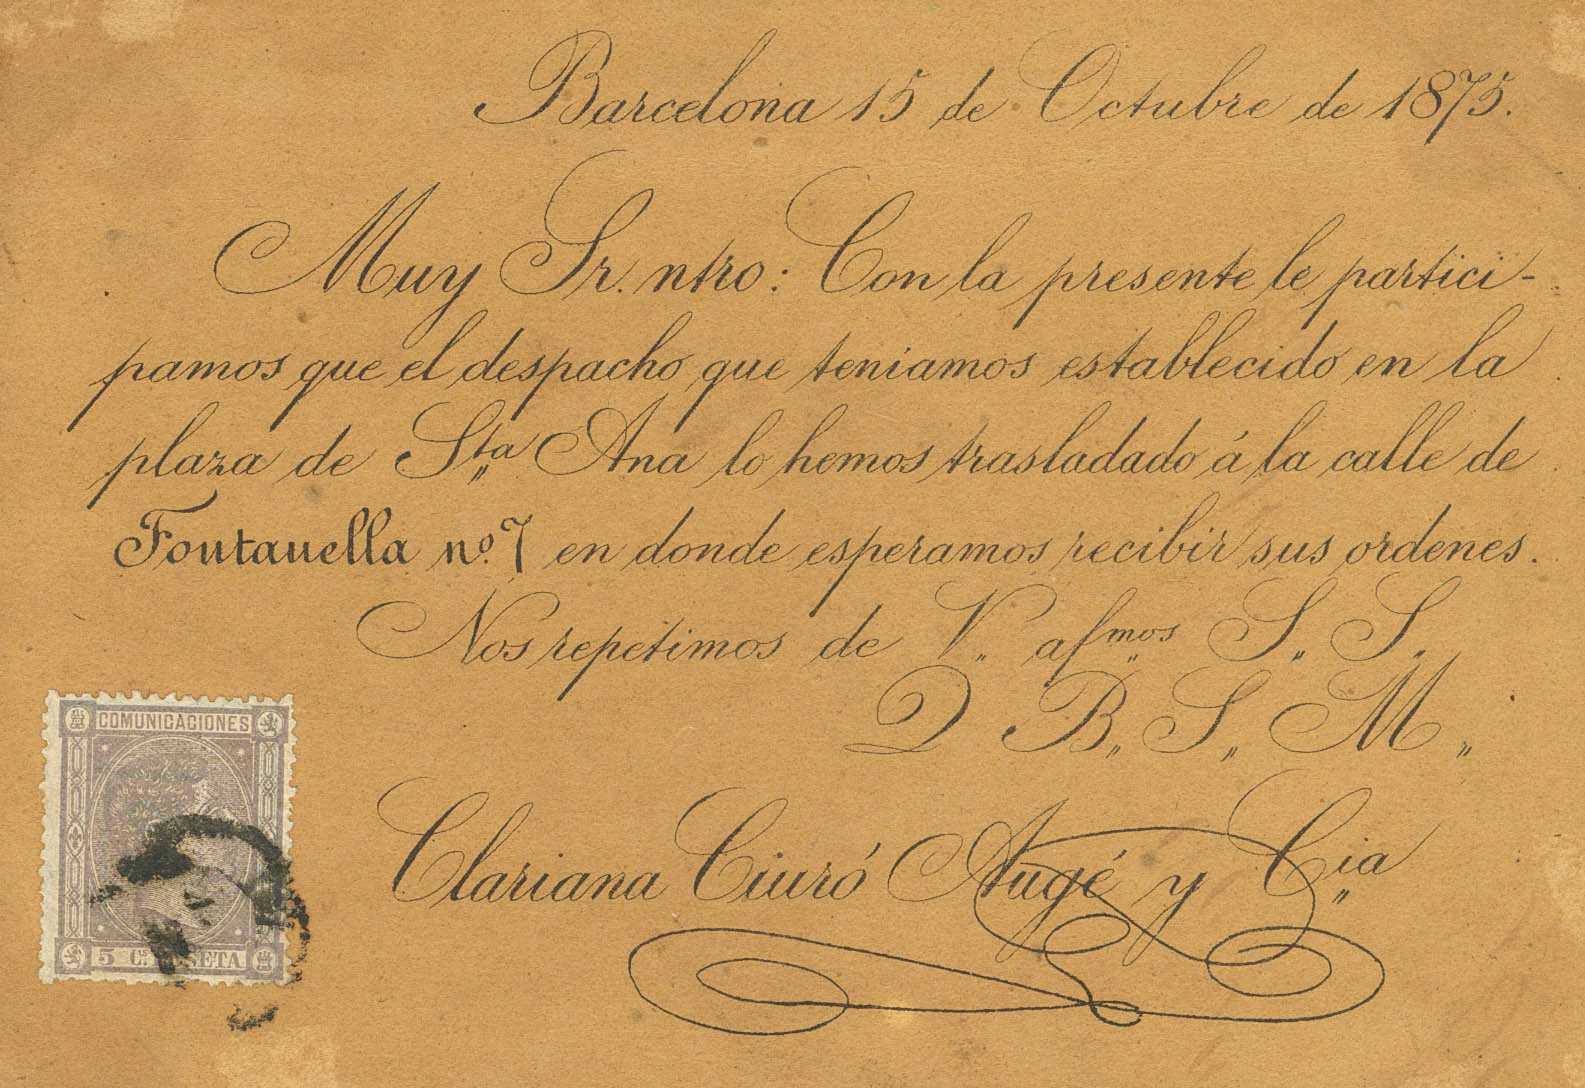 Barcelona 15 de Octubre de 1875.
Muy Sr. ntro: Con la presente le partici-
pamos que el despacho que teniamos establecido en la
plaza de Sta Ana lo hemos trasladado á la calle de
Fontanella nº. 7 en donde esperamos recibir sus ordenes.
Nos repetimos de V. afmos S. S.
Q B. S. M.
Clariana Ciuró Augé y Cia
COMUNICACIONES
5 Cs PESETA